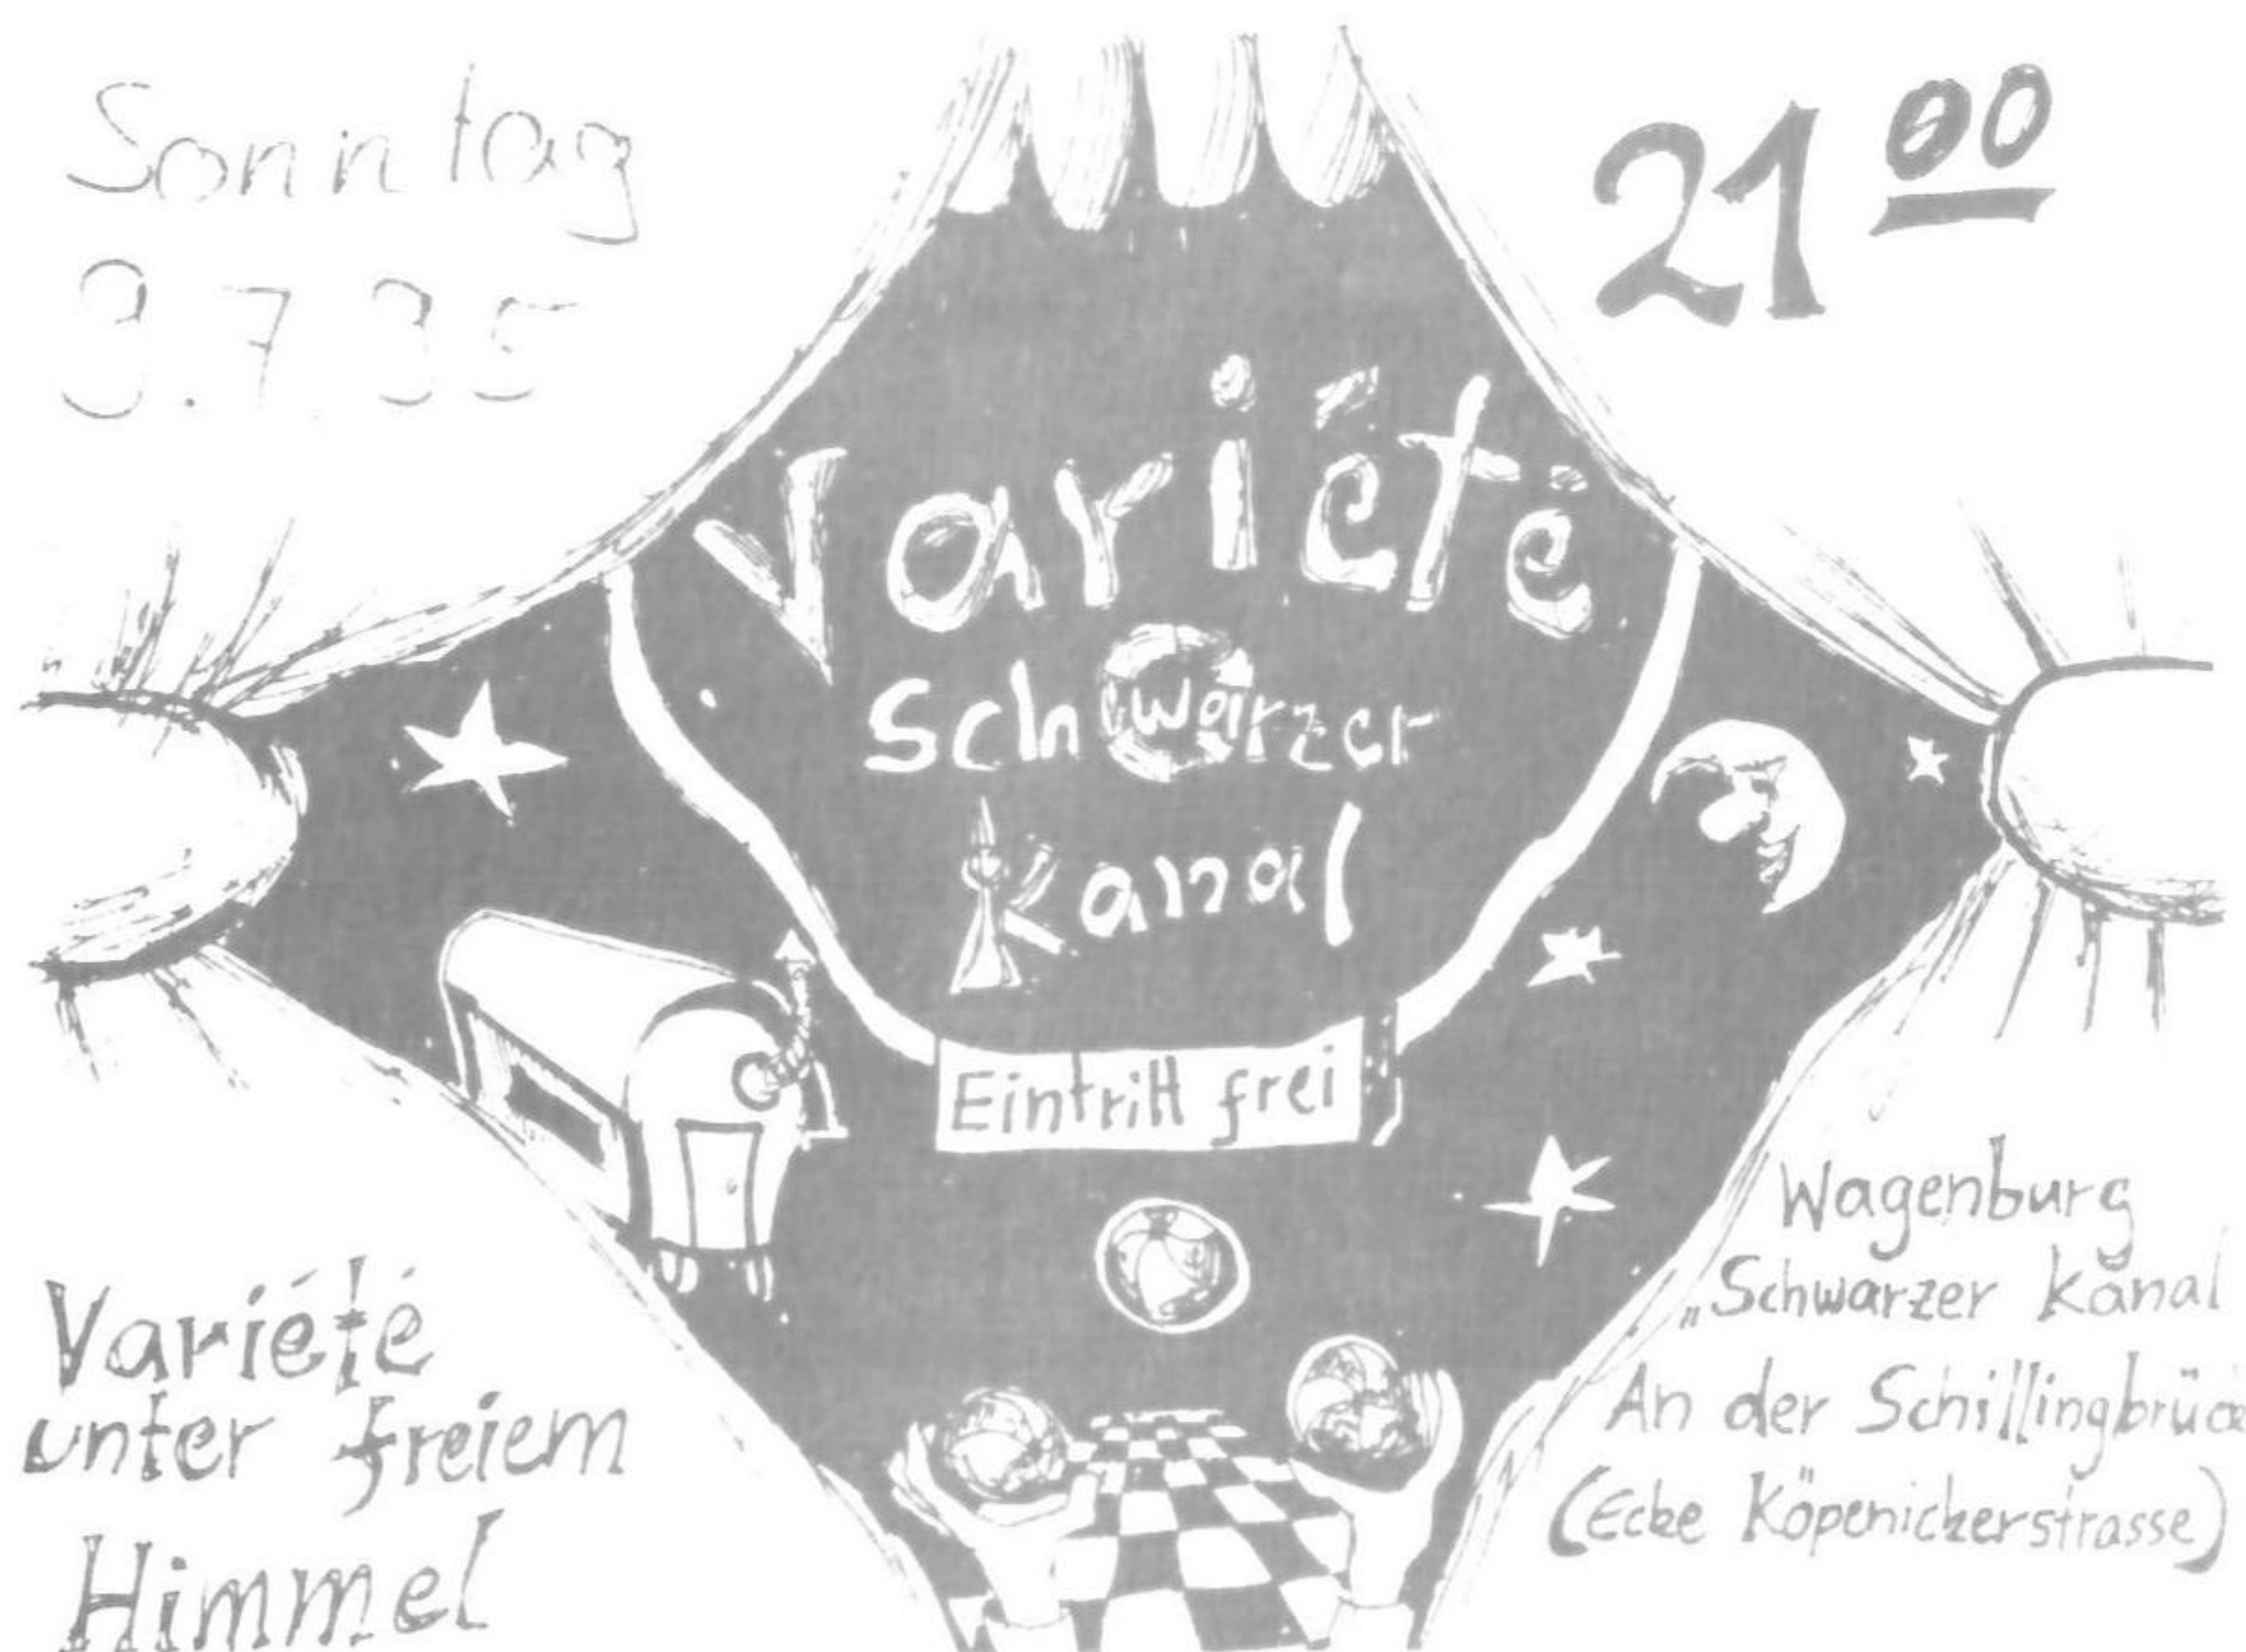 Sonntag
9.7.95
21⁰⁰
Variété
Schwarzer
Kanal
Eintritt frei
Variété
unter freiem
Himmel
Wagenburg
„Schwarzer Kanal
An der Schillingbrück
(Ecke Köpenickerstrasse)